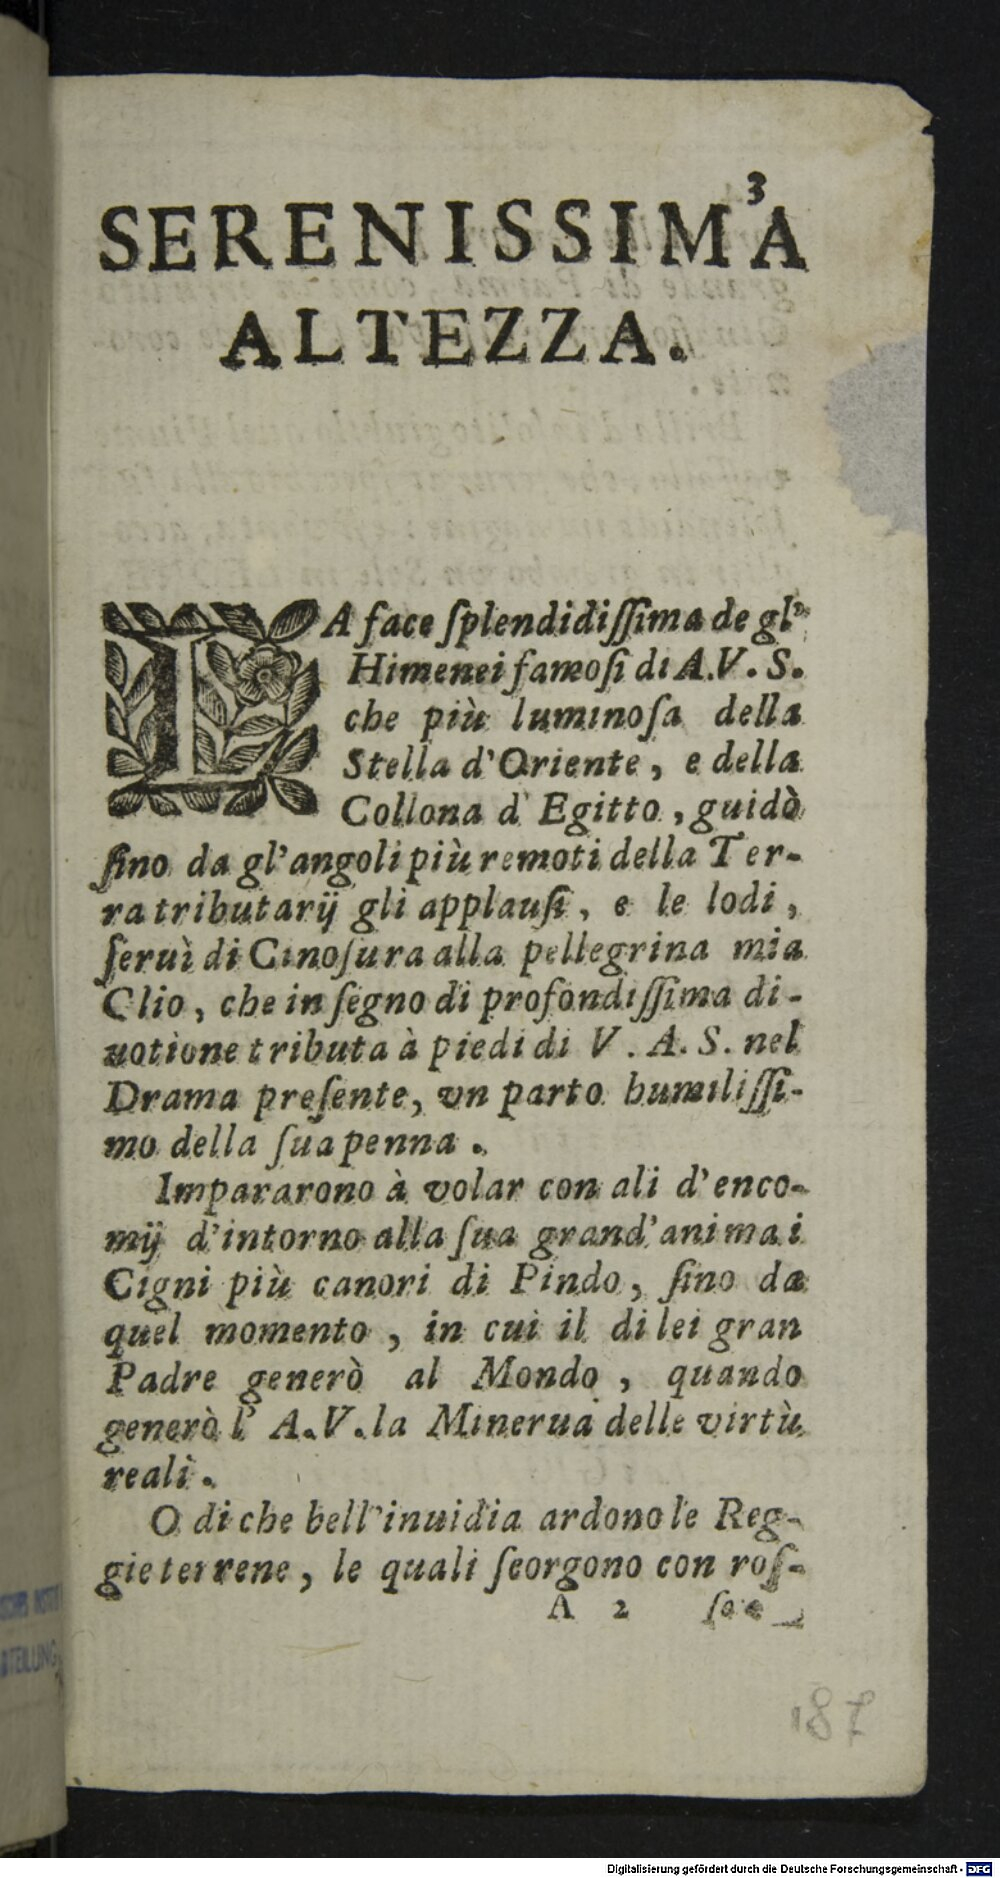 3
SERENISSIMA
ALTEZZA.
LA face ſplendidiſſima de gl'
Himenei famoſi di A.V.S.
che più luminoſa della
Stella d'Oriente, e della
Collona d'Egitto, guidò
ſino da gl'angoli più remoti della Ter-
ra tributarij gli applauſi, e le lodi,
ſeruì di Cinoſura alla pellegrina mia
Clio, che in ſegno di profondiſſima di-
uotione tributa à piedi di V. A. S. nel
Drama preſente, vn parto humiliſſi-
mo della ſua penna.
Impararono à volar con ali d'enco-
mij d'intorno alla ſua grand'anima i
Cigni più canori di Pindo, ſino da
quel momento, in cui il di lei gran
Padre generò al Mondo, quando
generò l'A.V. la Minerua delle virtù
reali.
O di che bell'inuidia ardono le Reg-
gie terrene, le quali ſeorgono con roſ-
A 2
187
Digitalisierung gefördert durch die Deutsche Forschungsgemeinschaft - DFG